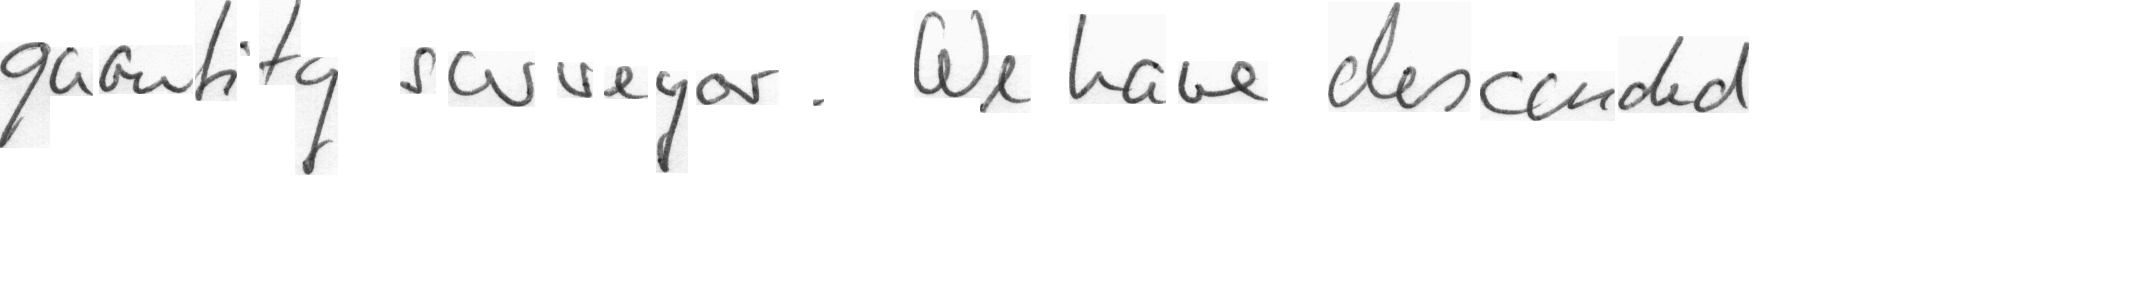 quantity surveyor. We have descended